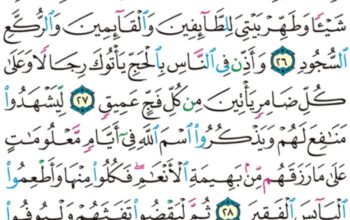 شَيْـًٔا وَطَهِّرْ بَيْتِىَ لِلطَّآئِفِينَ وَٱلْقَآئِمِينَ وَٱلرُّكَّعِ
ٱلسُّجُودِ ٢٦ وَأَذِّن فِى ٱلنَّاسِ بِٱلْحَجِّ يَأْتُوكَ رِجَالًا وَعَلَىٰ
كُلِّ ضَامِرٍ يَأْتِينَ مِن كُلِّ فَجٍّ عَمِيقٍ ٢٧ لِّيَشْهَدُوا۟
مَنَـٰفِعَ لَهُمْ وَيَذْكُرُوا۟ ٱسْمَ ٱللَّهِ فِىٓ أَيَّامٍ مَّعْلُومَـٰتٍ
عَلَىٰ مَا رَزَقَهُم مِّنۢ بَهِيمَةِ ٱلْأَنْعَـٰمِ ۖ فَكُلُوا۟ مِنْهَا وَأَطْعِمُوا۟
ٱلْبَآئِسَ ٱلْفَقِيرَ ٢٨ ثُمَّ لْيَقْضُوا۟ تَفَثَهُمْ وَلْيُوفُوا۟